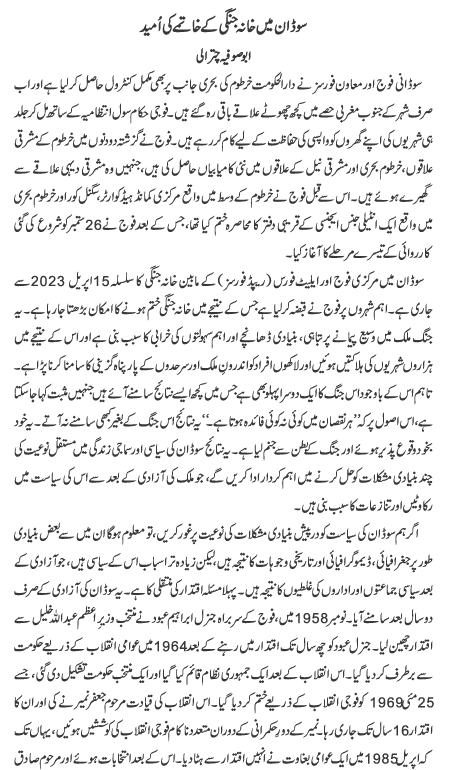 سوڈان میں خانہ جنگی کے خاتمے کی اُمید
ابو صوفیہ چترالی
سوڈانی فوج اور معاون فورسز نے دارالحکومت خرطوم کی بحری جانب پر بھی مکمل کنٹرول حاصل کر لیا ہے اور اب
صرف شہر کے جنوب مغربی حصے میں کچھ چھوٹے علاقے باقی رہ گئے ہیں۔ فوجی حکام سول انتظامیہ کے ساتھ مل کر جلد
ہی شہریوں کی اپنے گھروں کو واپسی کی حفاظت کے لیے کام کر رہے ہیں۔ فوج نے گزشتہ دو دنوں میں خرطوم کے مشرقی
علاقوں، خرطوم بحری اور مشرقی نیل کے علاقوں میں نئی کامیابیاں حاصل کی ہیں، جنہیں وہ مشرقی دیہی علاقے سے
گھیرے ہوئے ہیں۔ اس سے قبل فوج نے خرطوم کے وسط میں واقع مرکزی کمانڈ ہیڈ کوارٹر، سگنل کور اور خرطوم بحری
میں واقع ایک انٹیلی جنس ایجنسی کے قریبی دفتر کا محاصرہ ختم کیا تھا، جس کے بعد فوج نے 26 ستمبر کو شروع کی گئی
کارروائی کے تیسرے مرحلے کا آغاز کیا۔
سوڈان میں مرکزی فوج اور ایلیٹ فورس (ریپڈ فورسز) کے مابین خانہ جنگی کا سلسلہ 15 اپریل 2023 سے
جاری ہے۔ اہم شہروں پر فوج نے قبضہ کر لیا ہے جس کے نتیجے میں خانہ جنگی ختم ہونے کا امکان بڑھتا جا رہا ہے۔ یہ
جنگ ملک میں وسیع پیمانے پر تباہی، بنیادی ڈھانچے اور اہم سہولتوں کی خرابی کا سبب بنی ہے اور اس کے نتیجے میں
ہزاروں شہریوں کی ہلاکتیں ہوئیں اور لاکھوں افراد کو اندرون ملک اور سرحدوں کے پار پناہ گزینی کا سامنا کرنا پڑا ہے۔
تاہم اس کے باوجود اس جنگ کا ایک دوسرا پہلو بھی ہے جس میں کچھ ایسے نتائج سامنے آئے ہیں جنہیں مثبت کہا جا سکتا
ہے، اس اصول پر کہ ”ہر نقصان میں کوئی نہ کوئی فائدہ ہوتا ہے۔“ یہ نتائج اس جنگ کے بغیر کبھی سامنے نہ آتے۔ یہ خود
بخود وقوع پذیر ہوئے اور جنگ کے بطن سے جنم لیا ہے۔ یہ نتائج سوڈان کی سیاسی اور سماجی زندگی میں مستقل نوعیت کی
چند بنیادی مشکلات کو حل کرنے میں اہم کردار ادا کریں گے، جو ملک کی آزادی کے بعد سے اس کی سیاست میں
رکاوٹیں اور تنازعات کا سبب بنی ہیں۔
اگر ہم سوڈان کی سیاست کو درپیش بنیادی مشکلات کی نوعیت پر غور کریں، تو معلوم ہوگا ان میں سے بعض بنیادی
طور پر جغرافیائی، ڈیموگرافیائی اور تاریخی وجوہات کا نتیجہ ہیں، لیکن زیادہ تر اسباب اس کے سیاسی ہیں، جو آزادی کے
بعد سیاسی جماعتوں اور اداروں کی غلطیوں کا نتیجہ ہیں۔ پہلا مسئلہ اقتدار کی منتقلی کا ہے۔ یہ سوڈان کی آزادی کے صرف
دو سال بعد سامنے آیا۔ نومبر 1958 میں، فوج کے سربراہ جنرل ابراہیم عبود نے منتخب وزیر اعظم عبداللہ خلیل سے
اقتدار چھین لیا۔ جنرل عبود کو چھ سال تک اقتدار میں رہنے کے بعد 1964 میں عوامی انقلاب کے ذریعے حکومت
سے برطرف کر دیا گیا۔ اس انقلاب کے بعد ایک جمہوری نظام قائم کیا گیا اور ایک منتخب حکومت تشکیل دی گئی، جسے
25 مئی 1969 کو فوجی انقلاب کے ذریعے ختم کر دیا گیا۔ اس انقلاب کی قیادت مرحوم جعفر نمیرے نے کی اور ان کا
اقتدار 16 سال تک جاری رہا۔ نمیر کے دور حکمرانی کے دوران متعدد ناکام فوجی انقلاب کی کوششیں ہوئیں، یہاں تک
کہ اپریل 1985 میں ایک عوامی بغاوت نے انہیں اقتدار سے ہٹا دیا۔ اس کے بعد انتخابات ہوئے اور مرحوم صادق